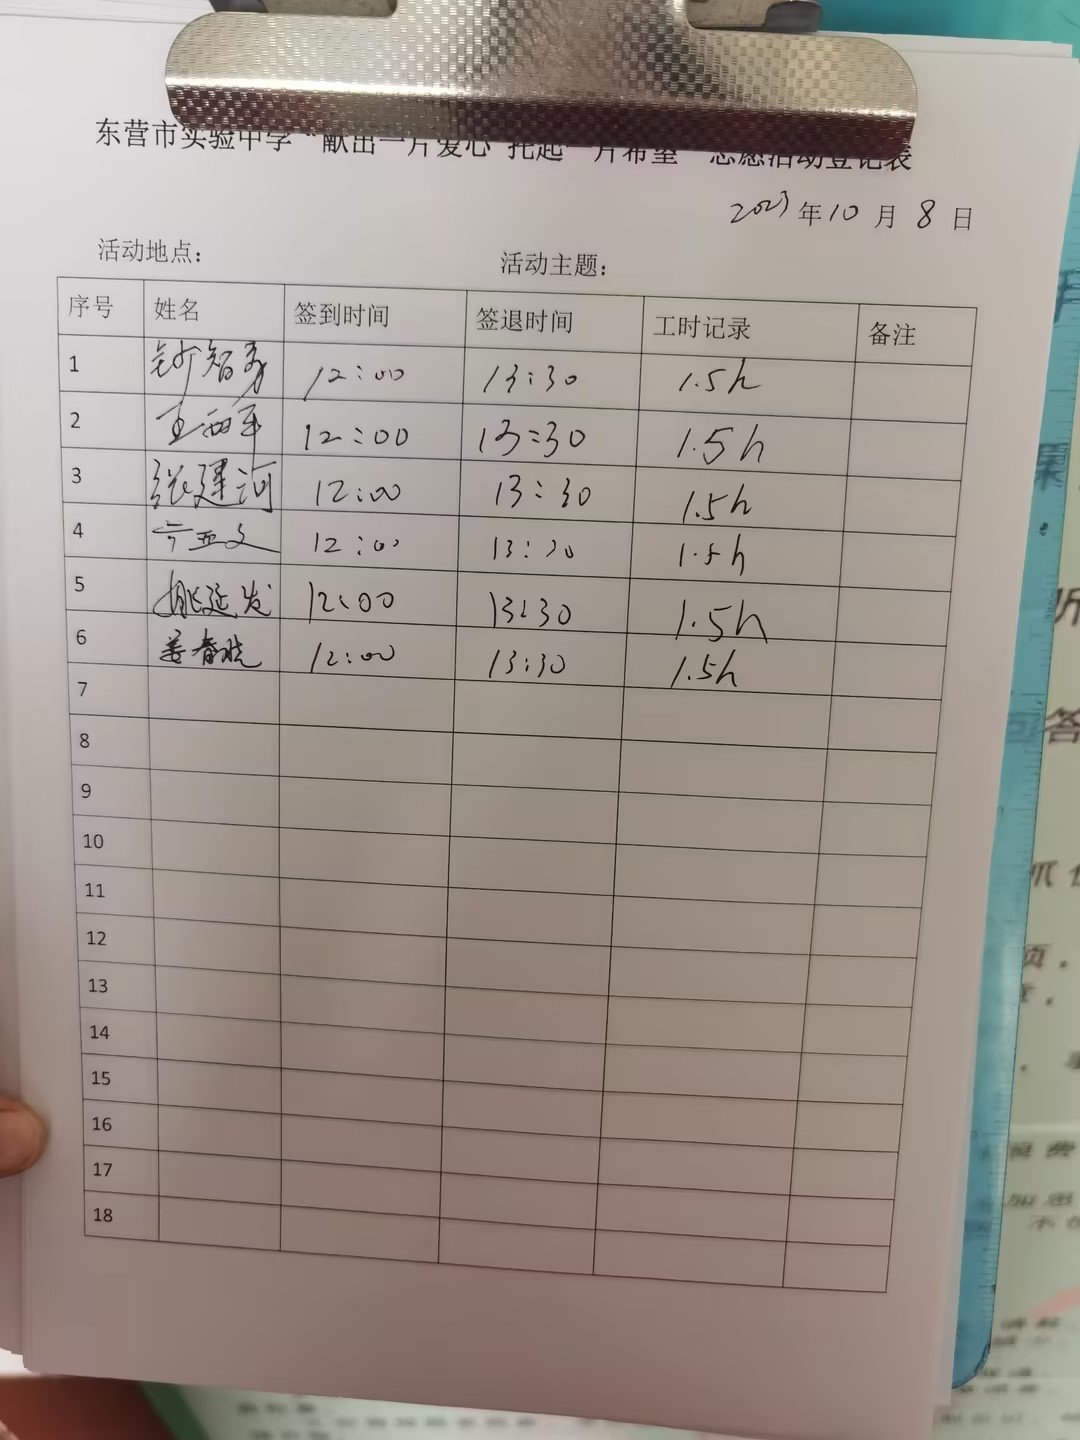 东营市实验中学“献出一片爱心 托起一片希望”志愿活动登记表
2023年10月8日
活动地点： 活动主题：
序号 姓名 签到时间 签退时间 工时记录 备注
1 智勇 12:00 13:30 1.5h
2 王西军 12:00 13:30 1.5h
3 张建河 12:00 13:30 1.5h
4 亚文 12:00 13:30 1.5h
5 姚延发 12:00 13:30 1.5h
6 姜春晓 12:00 13:30 1.5h
7
8
9
10
11
12
13
14
15
16
17
18